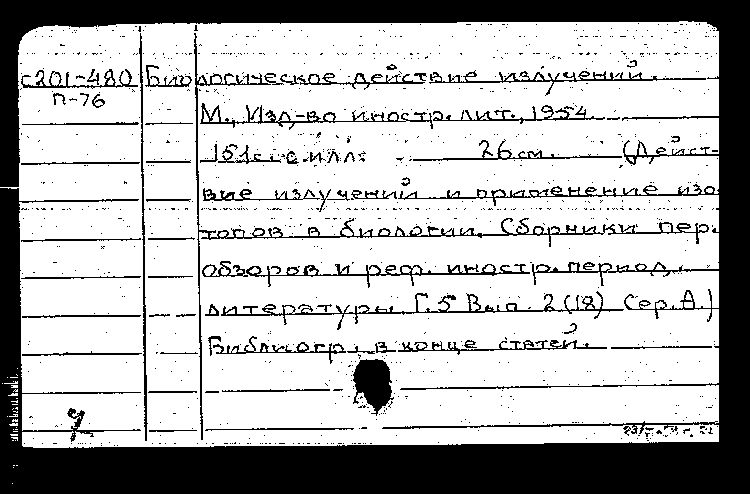 с201-480 Биологическое действие излучений.
П-76
М., Изд-во иностр. лит., 1954.
151с. с илл. 26 см. (Дейст-
вие излучений и применение изо
топов в биологии. Сборники пер.
обзоров и реф. иностр. период.
литературы Г.5 Вып. 2(18) Сер. А.)
Библиогр. в конце статей.